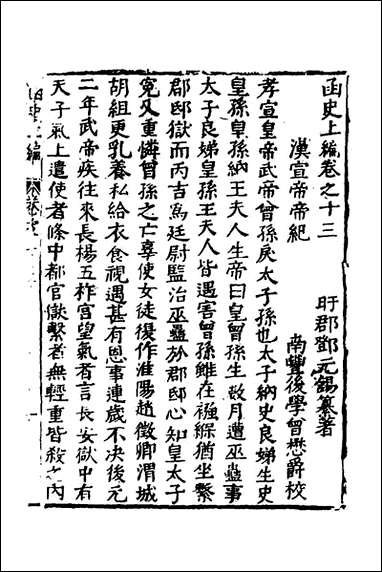 函史上編卷之十三
盱郡鄧元錫纂著
漢宣帝帝紀
南豐後學曾懋爵校
孝宣皇帝武帝曾孫戾太子孫也太子納史良娣生史
皇孫皇孫納王夫人生帝曰皇曾孫生數月遭巫蠱事
太子良娣皇孫王夫人皆遇害曾孫雖在襁緥猶坐繫
郡邸獄而丙吉爲廷尉監治巫蠱於郡邸心知皇太子
冤又重憐曾孫之亡辜使女徒復作淮陽趙徵卿渭城
胡組更乳養私給衣食視遇甚有恩事連歲不决後元
二年武帝疾往來長楊五柞宮望氣者言長安獄中有
天子氣上遣使者條中都官獄繫者無輕重皆殺之內